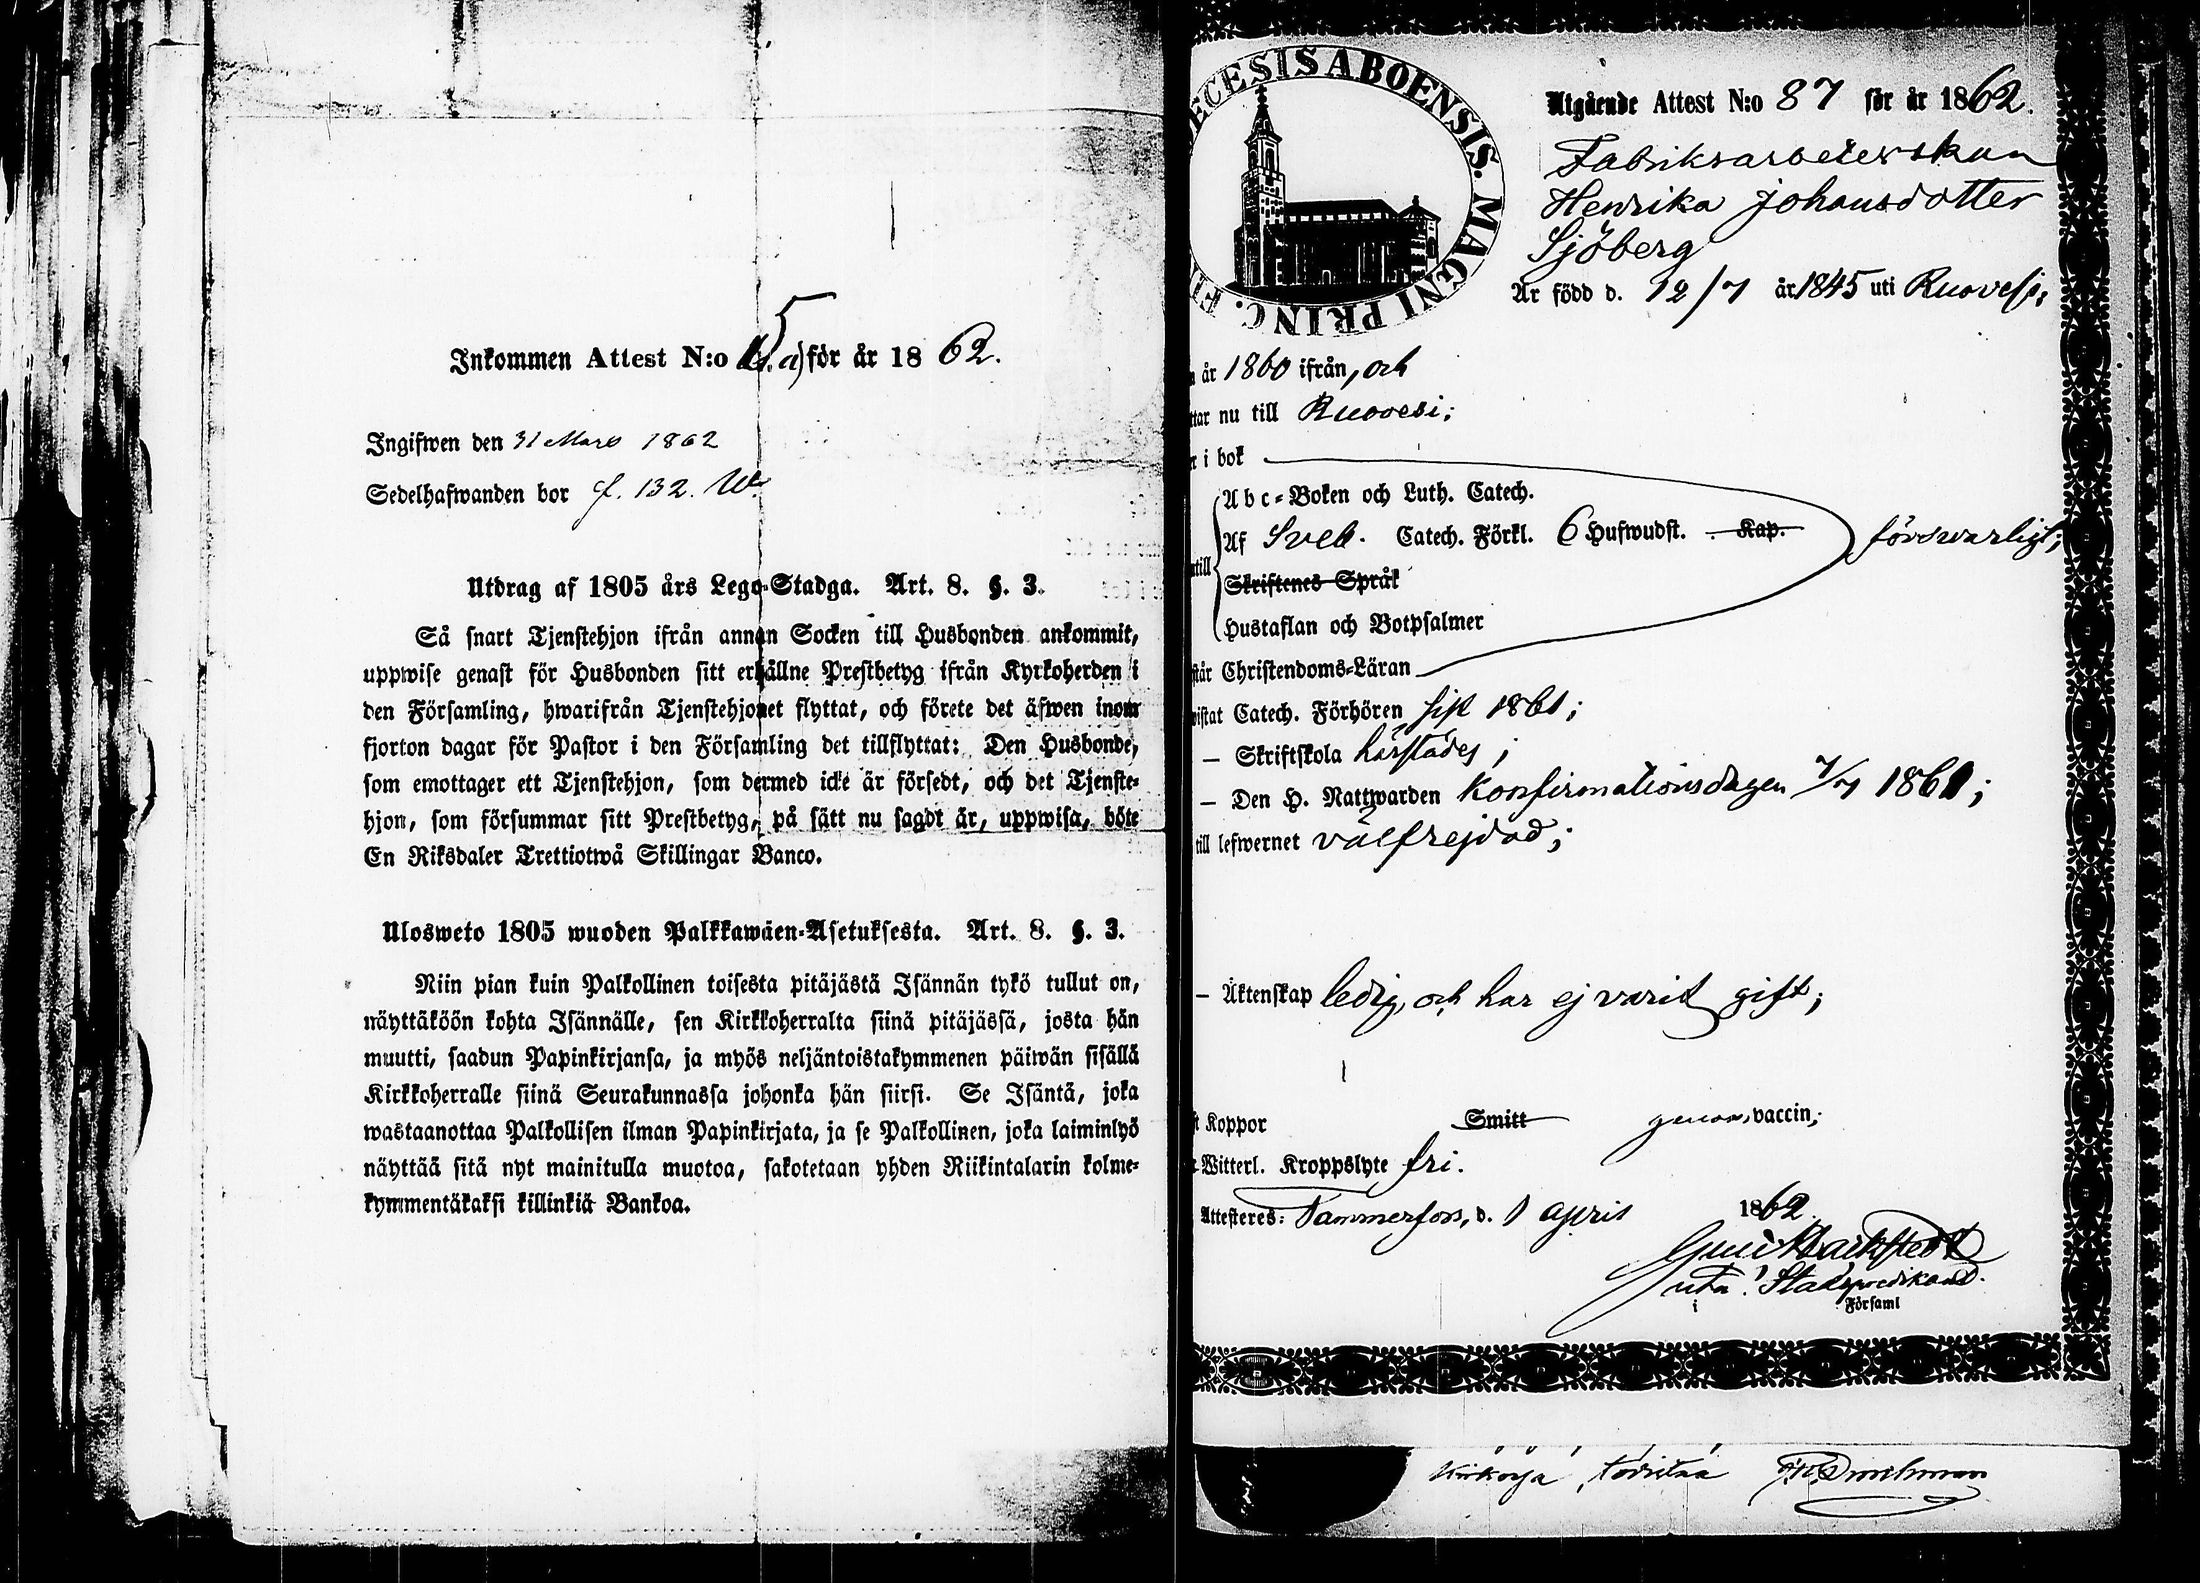 Inkommen Attest N:o 15. a) för år 1862.
Ingifwen den 31 Mars 1862
Sedelhafwanden bor f. 132. W.
Utdrag af 1805 års Lego-Stadga. Art. 8. §. 3.
Så snart Tjenstehjon ifrån annan Socken till Husbonden ankommit,
uppwise genast för Husbonden sitt erhållne Prestbetyg ifrån Kyrkoherden i
den Församling, hwarifrån Tjenstehjonet flyttat, och förete det äfwen inom
fjorton dagar för Pastor i den Församling det tillflyttat: Den Husbonde,
som emottager ett Tjenstehjon, som dermed icke är försedt, och det Tjenste-
hjon, som försummar sitt Prestbetyg, på sätt nu sagdt är, uppwisa, böte
En Riksdaler Trettiotwå Skillingar Banco.
Ulosweto 1805 wuoden Palkkawäen-Asetuksesta. Art. 8. §. 3.
Niin pian kuin Palkollinen toisesta pitäjästä Isännän tykö tullut on,
näyttäköön kohta Isännälle, sen Kirkkoherralta siinä pitäjässä, josta hän
muutti, saadun Papinkirjansa, ja myös neljäntoistakymmenen päiwän sisällä
Kirkkoherralle siinä Seurakunnassa johonka hän siirsi. Se Isäntä, joka
wastaanottaa Palkollisen ilman Papinkirjata, ja se Palkollinen, joka laiminlyö
näyttää sitä nyt mainitulla muotoa, sakotetaan yhden Riikintalarin kolme-
kymmentäkaksi killinkiä Bankoa.
ECESIS ABOENSIS. MAGNI PRINC. FI
Utgående Attest N:o 87 för år 1862.
Fabriksarbeterskan
Henrika Johansdotter
Sjöberg
Är född d. 12/7 år 1845 uti Ruovesi,
år 1860 ifrån, och
ttar nu till Ruovesi;
r i bok
Abc-Boken och Luth. Catech.
Af Sveb. Catech. Förkl. 6 Hufwudst. Kap. försvarligt;
ntill
Skriftenes Språk
Hustaflan och Botpsalmer
står Christendoms-Läran
wistat Catech. Förhören sist 1861;
— Skriftskola härstädes;
— Den H. Nattwarden Konfirmationsdagen 7/7 1861;
till lefwernet välfrejdad;
— Äktenskap ledig, och har ej varit gift;
t Koppor Smitt genom vaccin;
Witterl. Kroppslyte fri.
Attesteres: Tammerfors, d. 1 April 1862.
Stadspredikant.
i Församl